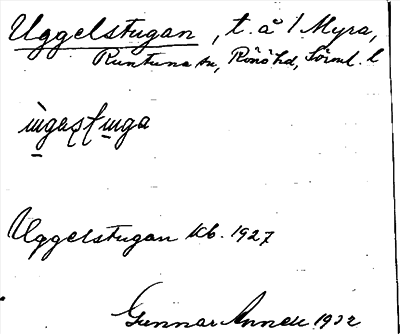 Uggelstugan, t. å 1 Myra,
Runtuna sn, Rönö hd, Sörml. l
Uggelstugan kb. 1927
Gunnar Annell 1932